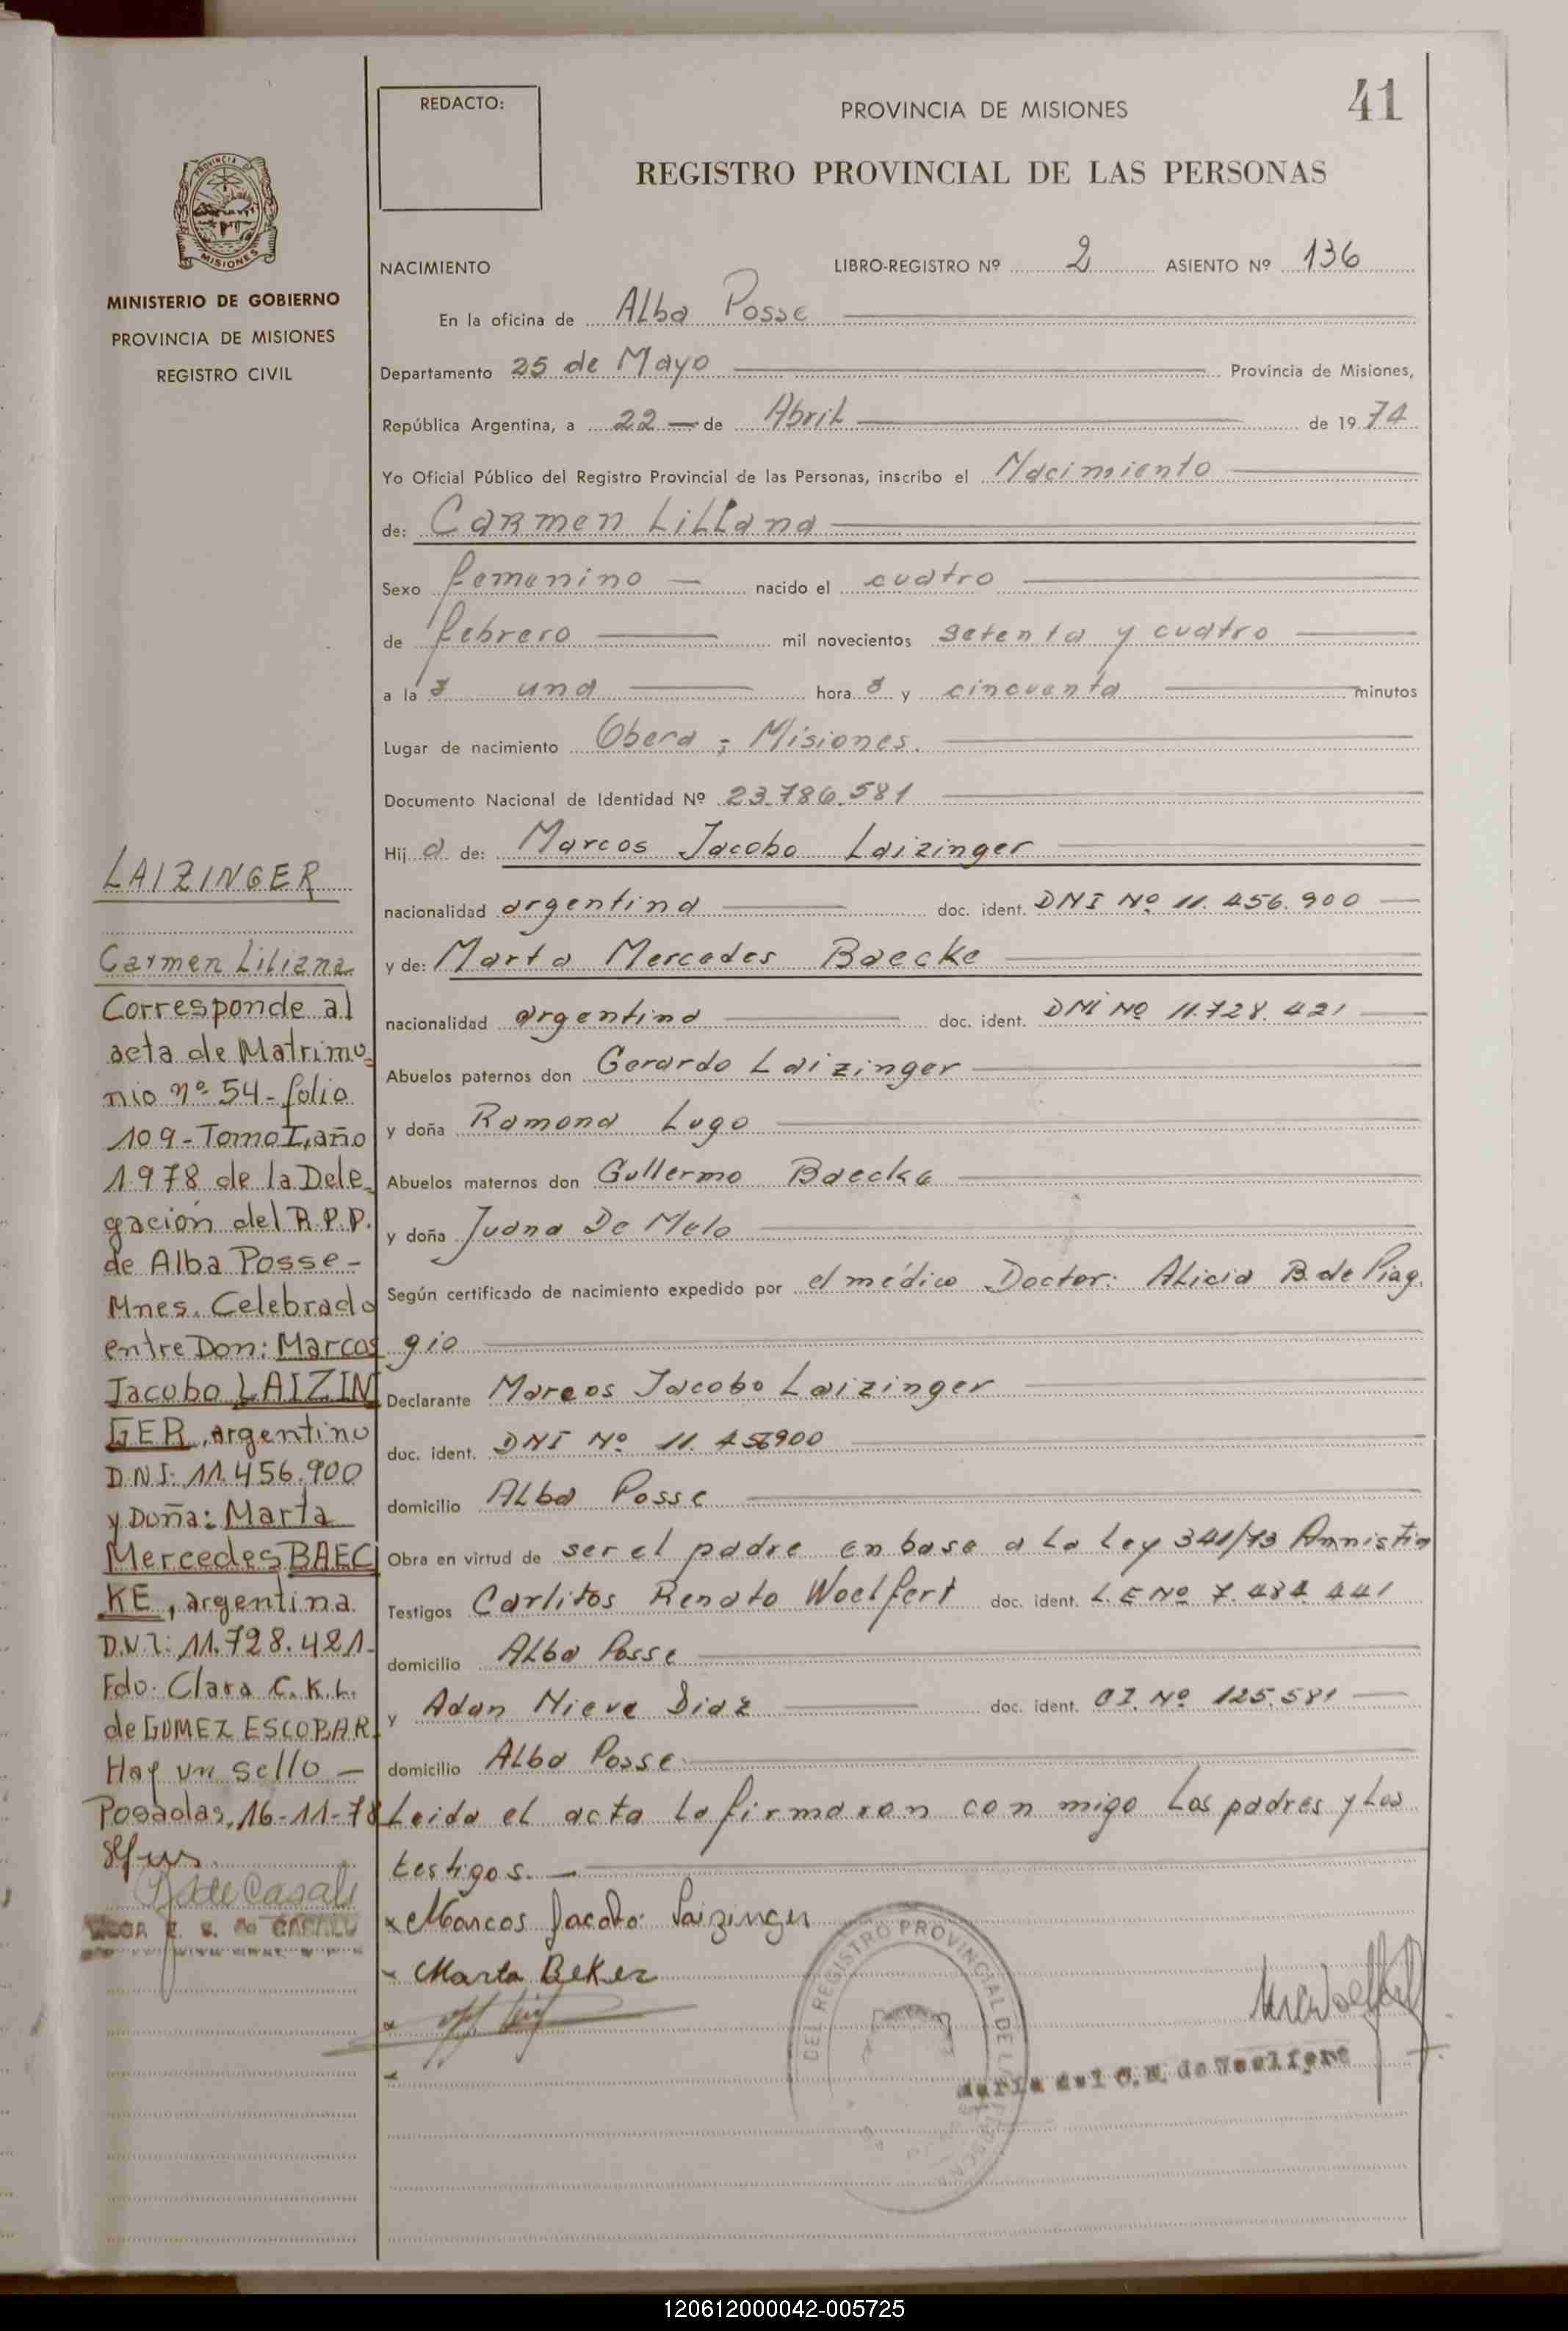 REDACTO:
PROVINCIA DE MISIONES
41
REGISTRO PROVINCIAL DE LAS PERSONAS
PROVINCIA DE
MISIONES
MINISTERIO DE GOBIERNO
PROVINCIA DE MISIONES
REGISTRO CIVIL
NACIMIENTO LIBRO-REGISTRO Nº 2 ASIENTO Nº 136
En la oficina de Alba Posse
Departamento 25 de Mayo Provincia de Misiones,
República Argentina, a 22 de Abril de 1974
Yo Oficial Público del Registro Provincial de las Personas, inscribo el Nacimiento
de: Carmen Liliana
Sexo femenino nacido el cuatro
de febrero mil novecientos setenta y cuatro
a la una hora y cincuenta minutos
Lugar de nacimiento Obera; Misiones.
Documento Nacional de Identidad Nº 23.786.581
Hija de: Marcos Jacobo Laizinger
nacionalidad argentina doc. ident. DNI Nº 11.456.900
y de: Marta Mercedes Baecke
nacionalidad argentina doc. ident. DNI Nº 11.728.421
Abuelos paternos don Gerardo Laizinger
y doña Ramona Lugo
Abuelos maternos don Gullermo Baecke
y doña Juana De Melo
Según certificado de nacimiento expedido por el médico Doctor: Alicia B. de Piag
gio
Declarante Marcos Jacobo Laizinger
doc. ident. DNI Nº 11.456900
domicilio Alba Posse
Obra en virtud de ser el padre en base a la Ley 341/73 Amnistia
Testigos Carlitos Renato Woelfert doc. ident. L.E Nº 7.484.441
domicilio Alba Posse
y Adan Nieve Diaz doc. ident. CI. Nº 125.581
domicilio Alba Posse
Leida el acta la firmaron con migo los padres y los
testigos.
x Marcos Jacobo Laizinger
x Marta Beker
x
x
LAIZINGER
Carmen Liliana
Corresponde al
acta de Matrimo
nio nº 54-folio
109-Tomo I, año
1978 de la Dele
gación del R.P.P.
de Alba Posse-
Mnes. Celebrado
entre Don: Marcos
Jacobo LAIZIN
GER, argentino
D.N.I: 11.456.900
y Doña: Marta
Mercedes BAEC
KE, argentina
D.N.I: 11.728.421-
Fdo. Clara C.K.L.
de GOMEZ ESCOBAR.
Hay un sello -
Posadas, 16-11-78
DEL REGISTRO PROVINCIAL DE LAS PERSONAS
Maria del C.N. de Woelfert
120612000042-005725